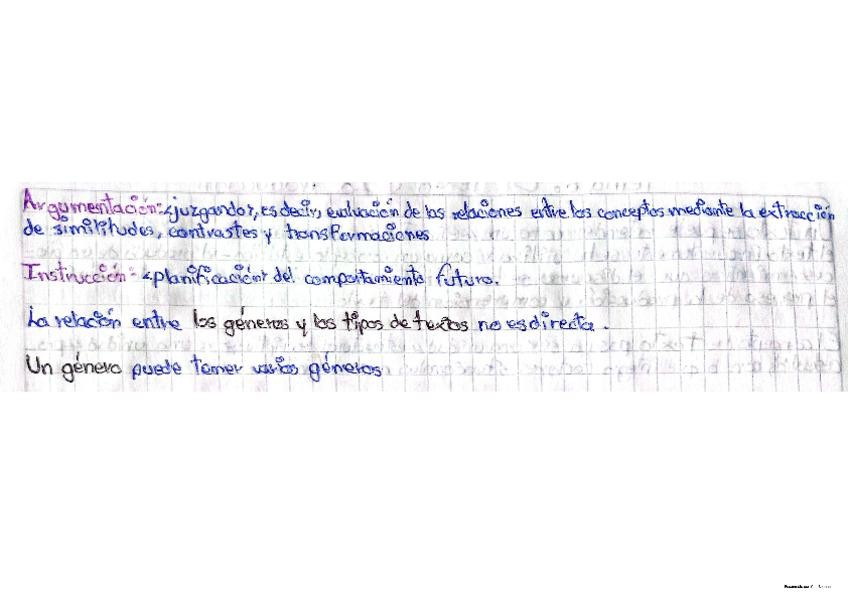 Argumentación: <juzgando>, es decir, evaluación de las relaciones entre los conceptos mediante la extracción
de similitudes, contrastes y transformaciones
Instrucción: <planificación> del comportamiento futuro.
La relación entre los géneros y los tipos de textos no es directa.
Un género puede tomar varios géneros